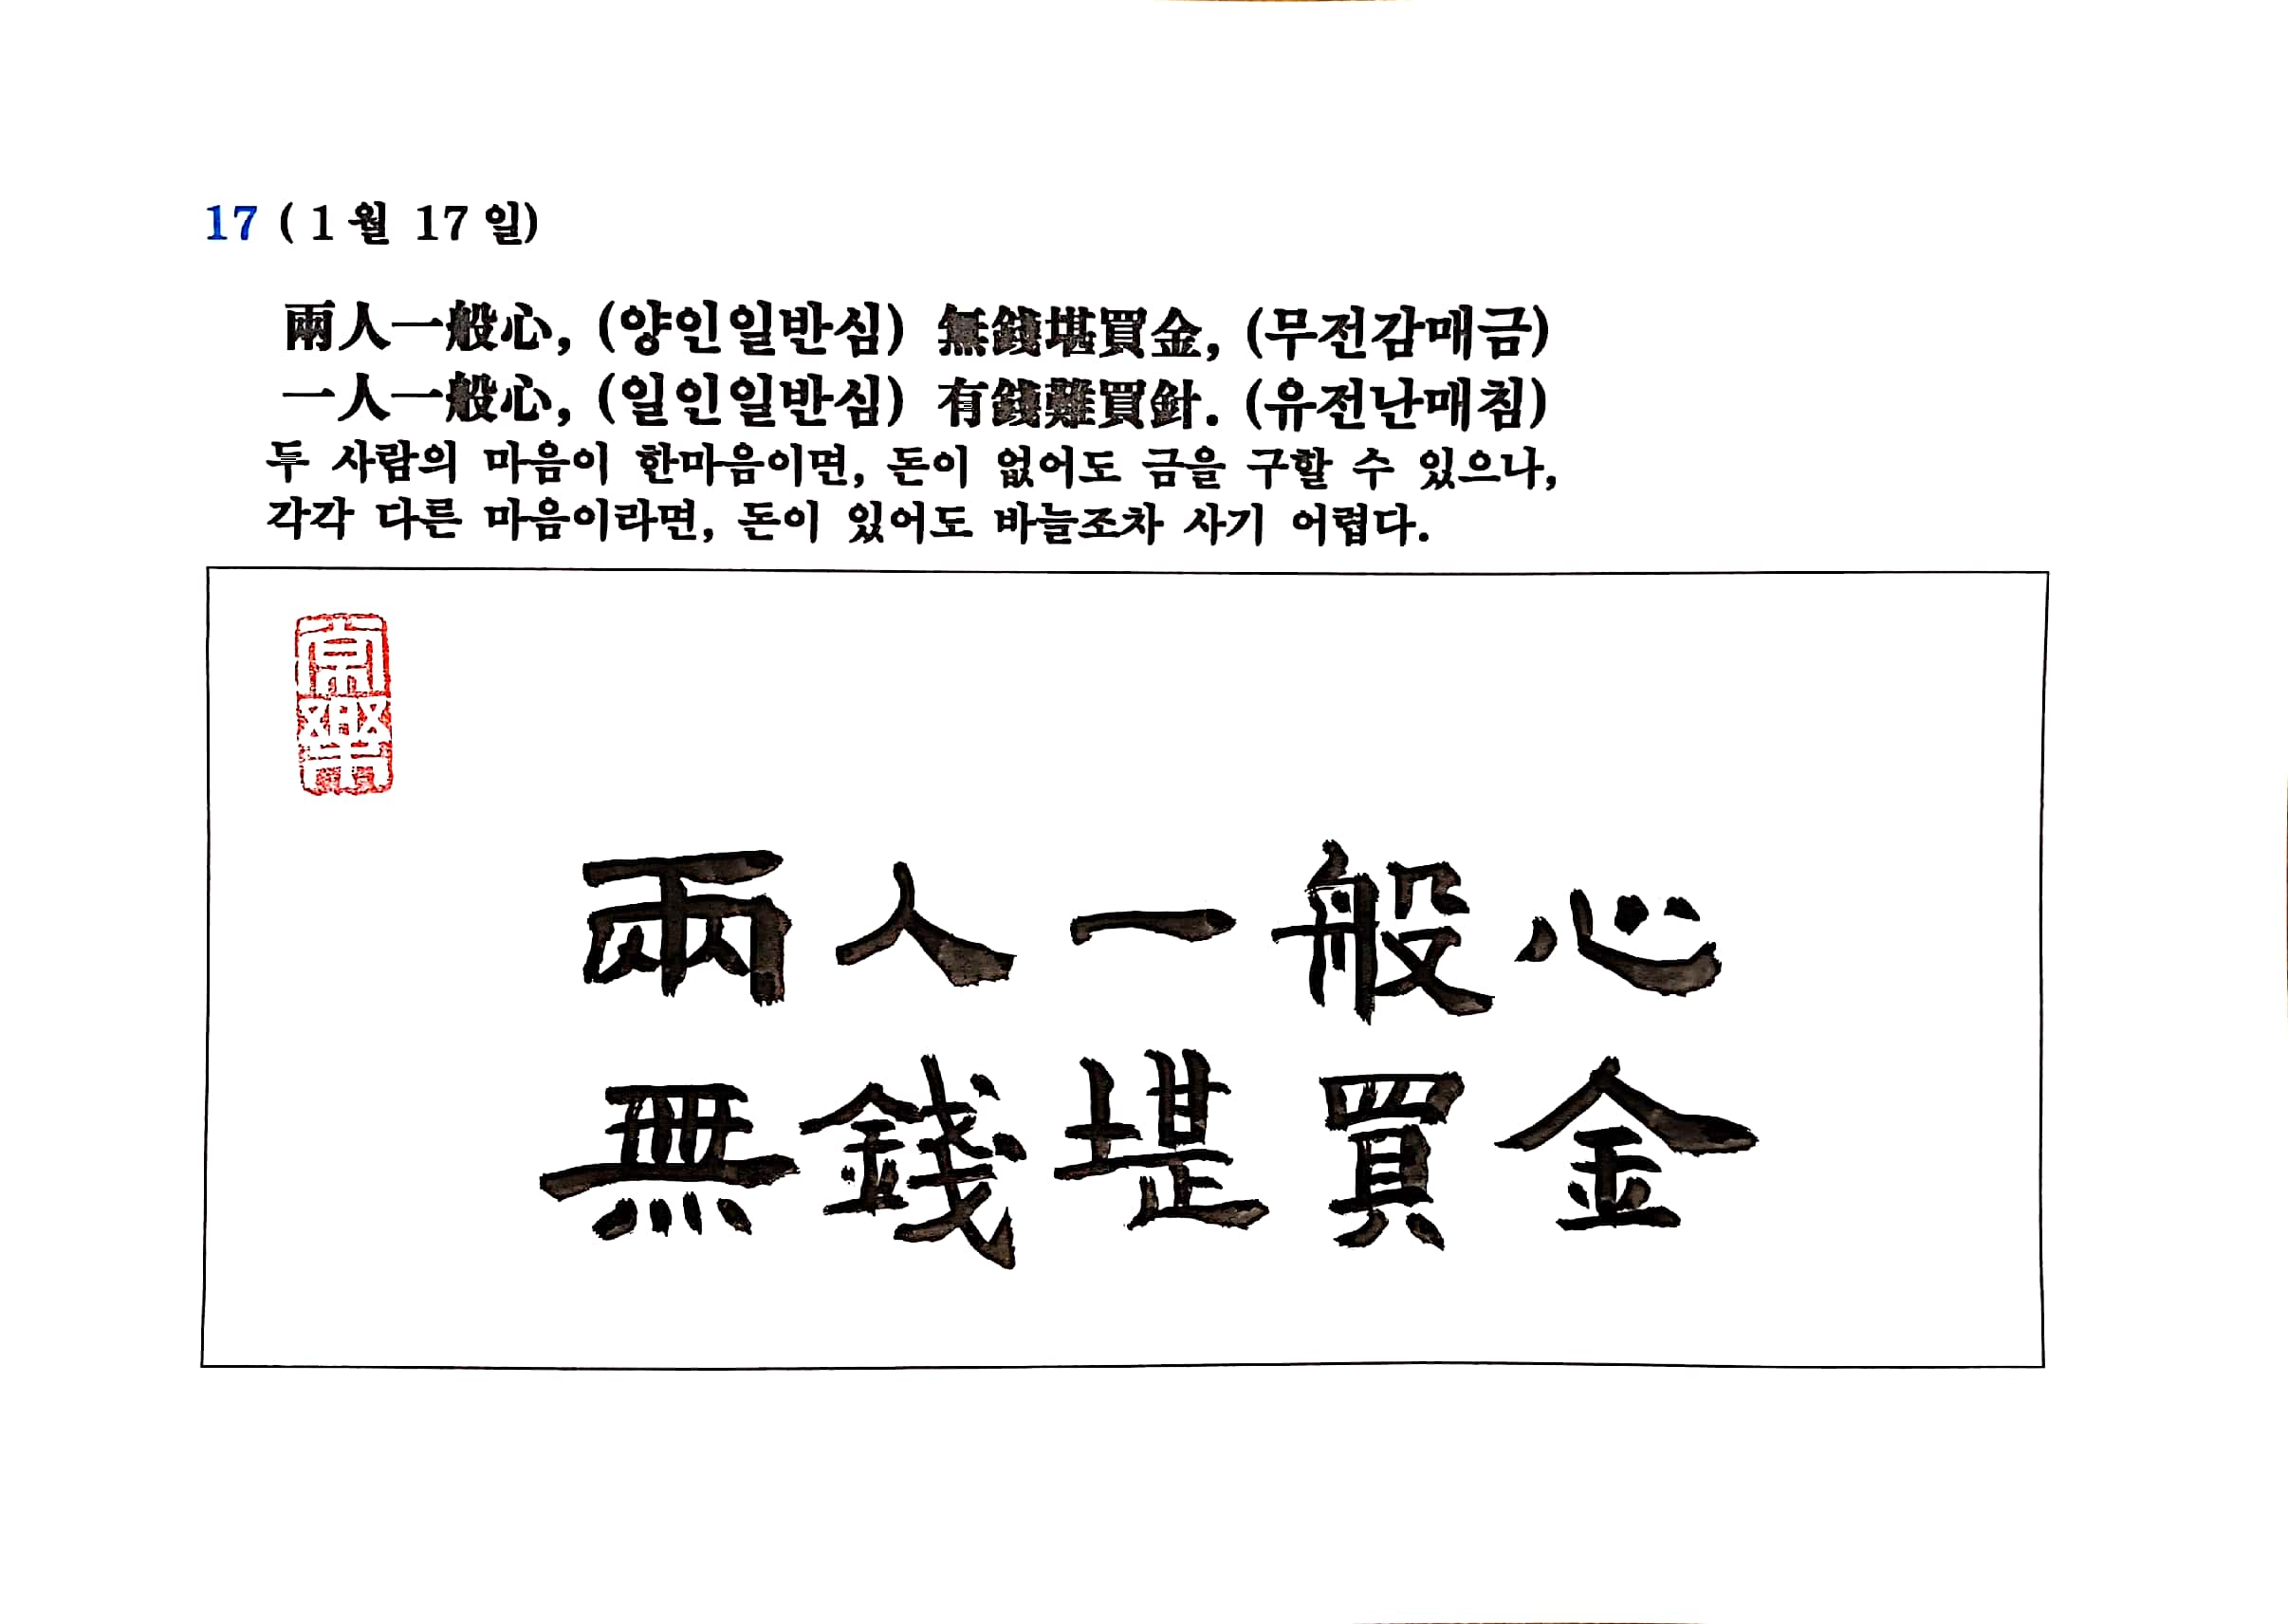 17 ( 1월 17일)
兩人一般心, (양인일반심) 無錢堪買金, (무전감매금)
一人一般心, (일인일반심) 有錢難買針. (유전난매침)
두 사람의 마음이 한마음이면, 돈이 없어도 금을 구할 수 있으나,
각각 다른 마음이라면, 돈이 있어도 바늘조차 사기 어렵다.
兩人一般心
無錢堪買金